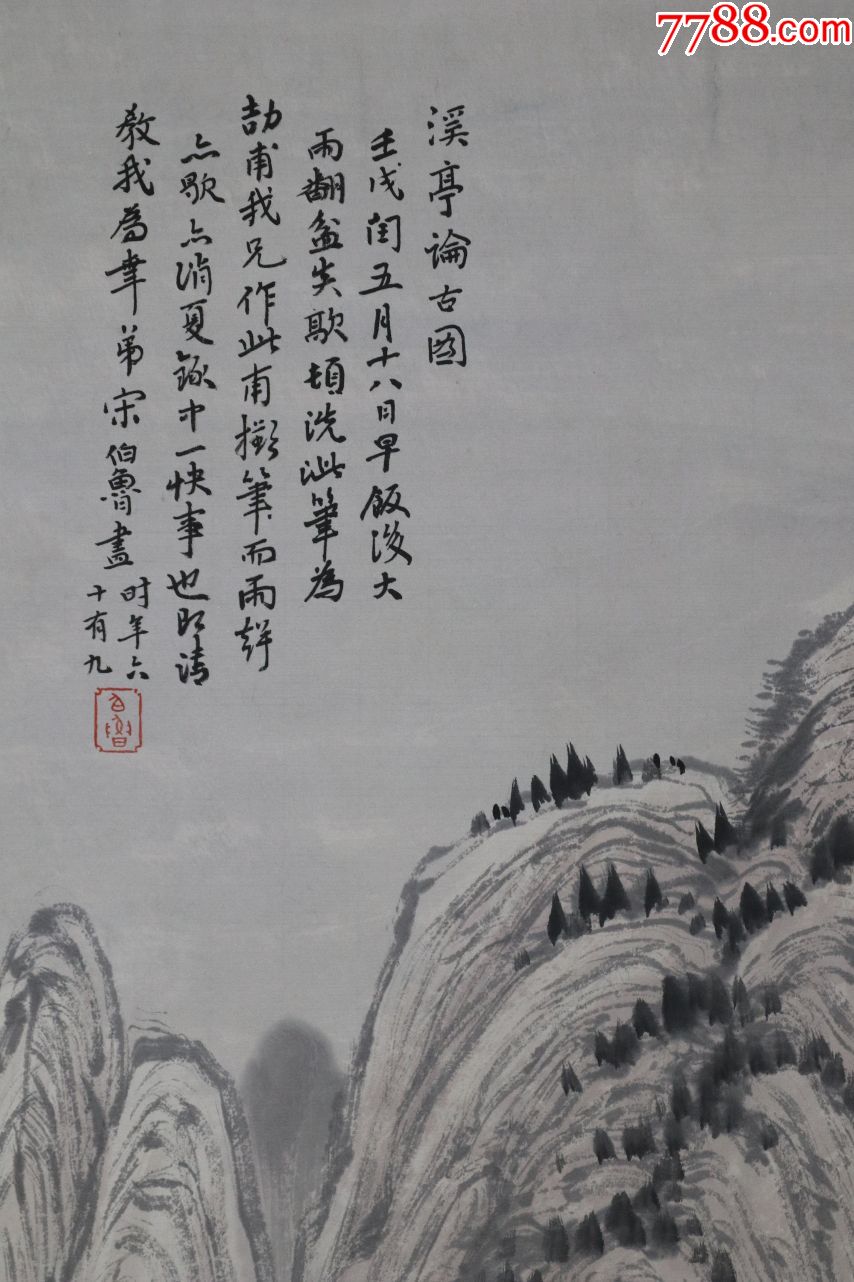 7788.com
溪亭論古圖
壬戌閏五月十八日早飯後大
雨翻盆炎歊頓洗泚筆為
劼甫我兄作此甫擱筆而雨聲
亦歇亦消夏錄中一快事也即請
教我為幸弟宋伯魯畫
时年六
十有九